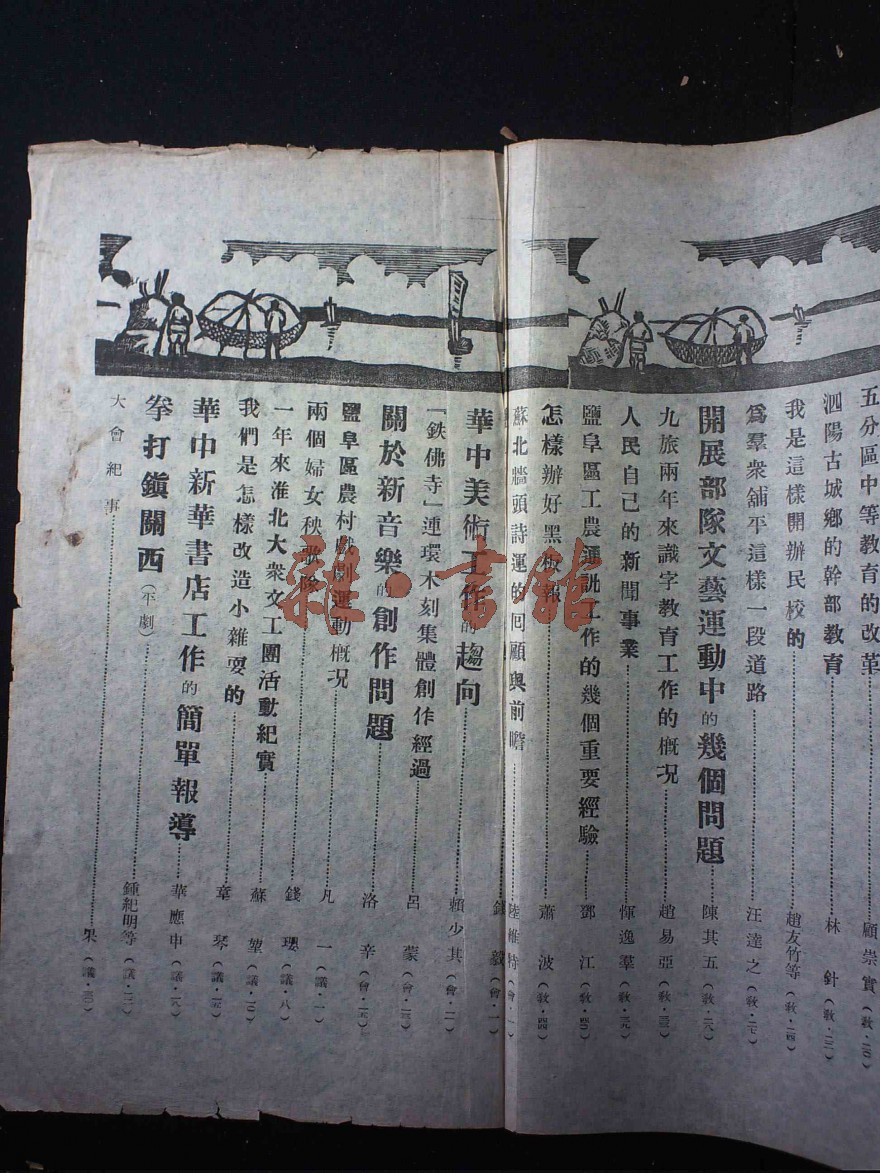 五分區中等教育的改革 顧崇實(敎·二〇)
泗陽古城鄉的幹部教育 林針(敎·二二)
我是這樣開辦民校的 趙友竹等(敎·二四)
爲羣衆舖平這樣一段道路 汪達之(敎·二七)
開展部隊文藝運動中的幾個問題 陳其五(敎·二八)
九旅兩年來識字教育工作的概況 趙易亞(敎·三三)
人民自己的新聞事業 惲逸羣(敎·三九)
鹽阜區工農通訊工作的幾個重要經驗 鄧江(敎·四〇)
怎樣辦好黑板報 蕭波(敎·四四)
蘇北牆頭詩運的回顧與前瞻 陸維特(會·一)
錢毅(會·一)
華中美術工作的趨向 賴少其(會·二一)
「鉄佛寺」連環木刻集體創作經過 呂蒙(會·二三)
關於新音樂的創作問題 洛辛(會·二五)
鹽阜區農村戲劇運動概況 凡一(議·一)
兩個婦女秧歌隊 錢璎(議·八)
一年來淮北大衆文工團活動紀實 蘇堃(議·一〇)
我們是怎樣改造小雜耍的 章琴(議·一五)
華中新華書店工作的簡單報導 華應申(議·一八)
拳打鎮關西(平劇) 鍾紀明等(議·二二)
大會紀事 果(議·三〇)
雜·書館